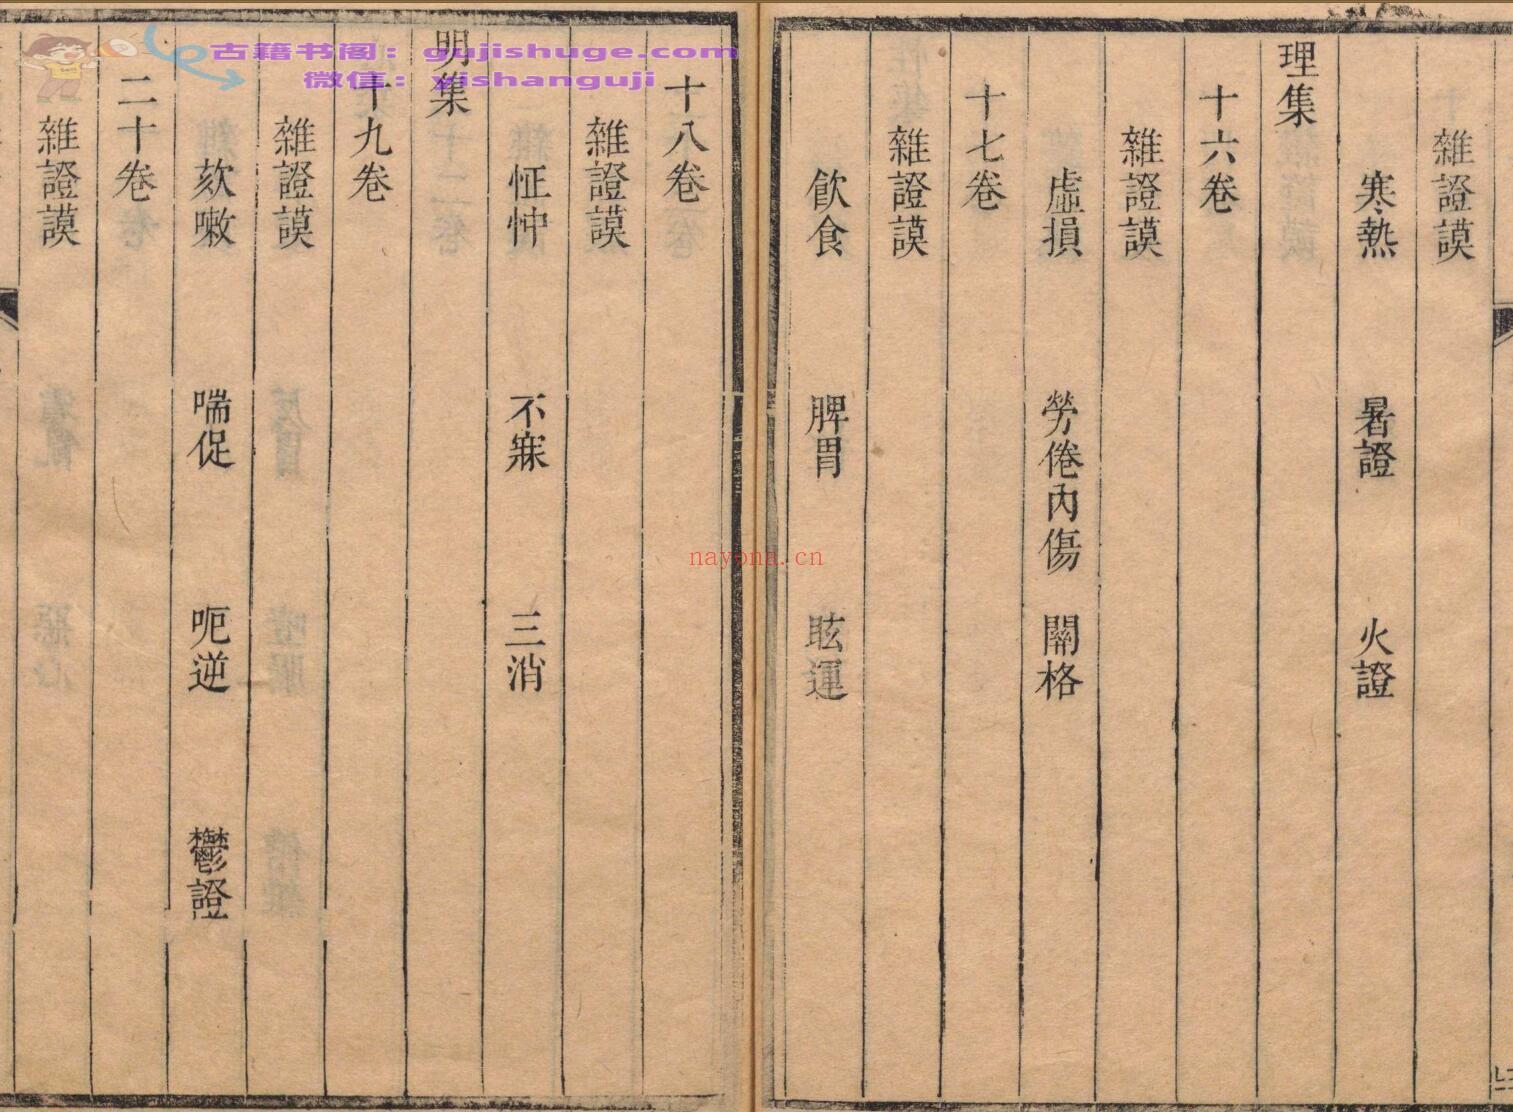 雜證謨
寒熱 暑證 火證
理集
十六卷
雜證謨
虛損 勞倦內傷 關格
十七卷
雜證謨
飲食 脾胃 眩運
十八卷
雜證謨
怔忡 不寐 三消
明集
十九卷
雜證謨
欬嗽 喘促 呃逆 鬱證
二十卷
雜證謨
古籍书阁：gujishuge.com
微信：yishanguji
nayona.cn